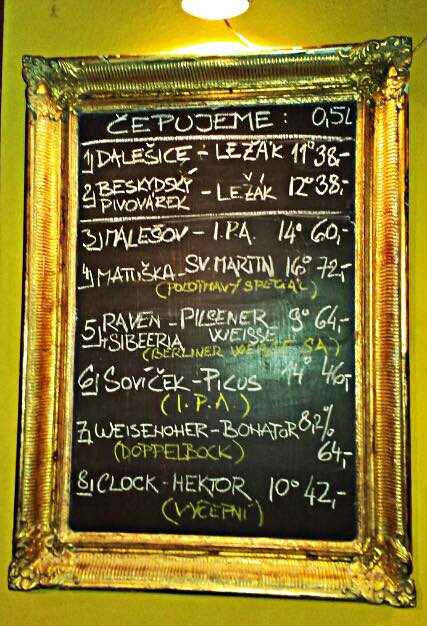 ČEPUJEME: 0,5L
1) DALEŠICE - LEŽÁK 11° 38,-
2) BESKYDSKÝ PIVOVÁREK - LEŽÁK 12° 38,-
3) MALEŠOV - I.P.A. 14° 60,-
4) MATUŠKA - SV. MARTIN 16° 72,-
(POLOTMAVÝ SPECIÁL)
5) RAVEN - PILSENER 9° 64,-
+ SIBEERIA WEISSE
(BERLINER WEISSE)
6) SOVÍČEK - PICUS 14° 46,-
(I.P.A)
7) WEISENOHER - BONATOR 8,2%
(DOPPELBOCK) 64,-
8) CLOCK - HEKTOR 10° 42,-
(VÝČEPNÍ)